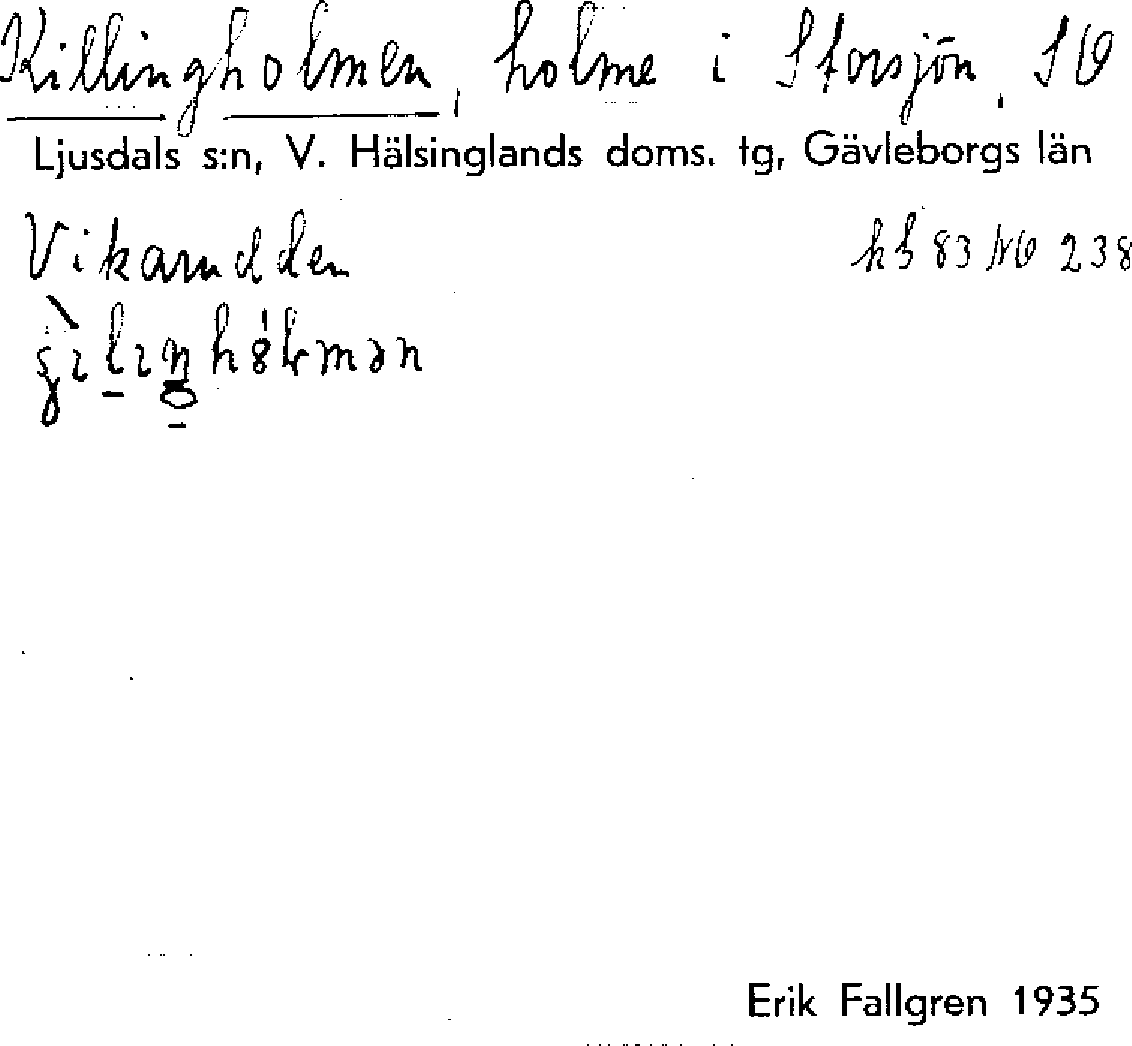 Killingholmen, holme i Storsjön, SO
Ljusdals s:n, V. Hälsinglands doms. tg, Gävleborgs län
Vikarudden hs 83 NO 238
Erik Fallgren 1935